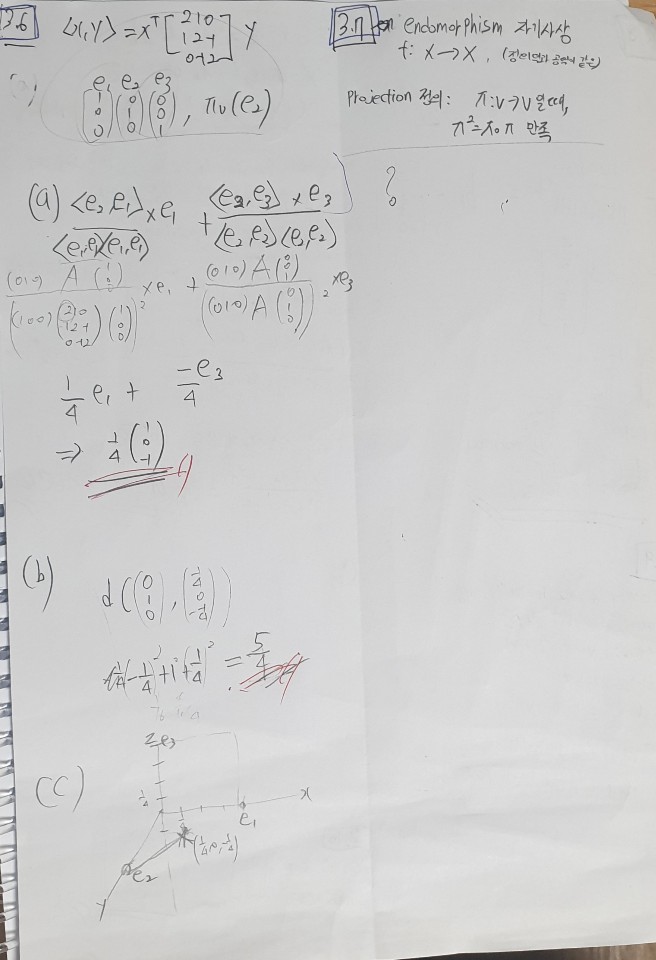 3.6 <x,y> = x^T [2 1 0; 1 2 -1; 0 -1 2] y
e₁ e₂ e₃
(1 0 0) (0 1 0) (0 0 1), π_U(e₂)
(a) <e₂,e₁> × e₁ / <e₁,e₁><e₁,e₁> + <e₂,e₃> × e₃ / <e₂,e₂><e₂,e₂>
(0 1 0) A (1 0 0) / ((1 0 0) (2 1 0; 1 2 -1; 0 -1 2) (1 0 0))² × e₁ + (0 1 0) A (0 0 1) / ((0 1 0) A (0 1 0))² × e₃
1/4 e₁ + -e₃/4
⇒ 1/4 (1 0 -1)
(b)
d((0 1 0), (1/4 0 -1/4))
= 5/4
(c)
z e₃
1/4
x
e₁
(1/4, 0, -1/4)
e₂
y
3.7 endomorphism 자기사상
f: X → X,
Projection 정의: π: V → V 일때,
π² = π∘π 만족
?